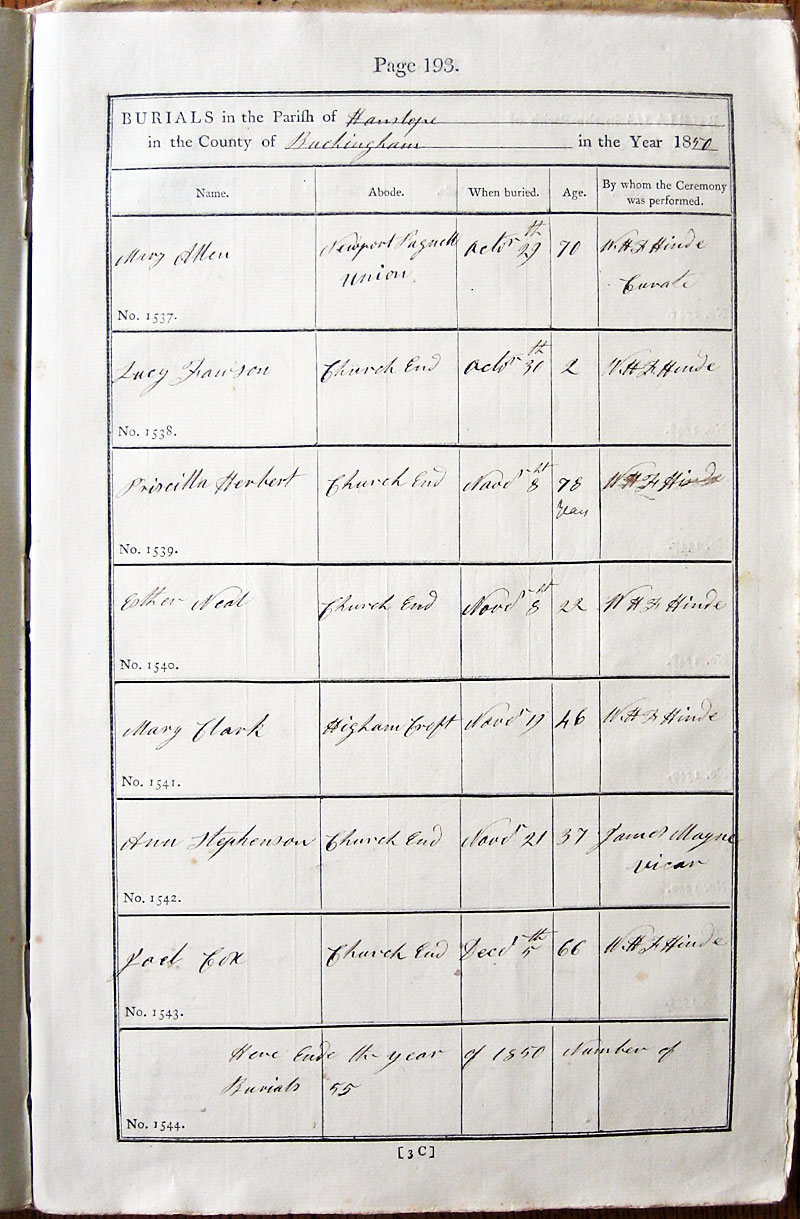 Page 193.
BURIALS in the Parish of Hanslope
in the County of Buckingham in the Year 1850
Name. Abode. When buried. Age. By whom the Ceremony was performed.
Mary Allen Newport Pagnell Octor 29th 70 W.H.F Hinde
Union Curate
No. 1537.
Lucy Church End Octor 30th 2 W.H.F Hinde
No. 1538.
Priscilla Herbert Church End Novr 8ht 78 W.H.F Hinde
Years
No. 1539.
Esther Neal Church End Novr 8ht 22 W H F Hinde
No. 1540.
Mary Clark Higham Croft Novr 19 46 W.H.F Hinde
No. 1541.
Ann Stephenson Church End Novr 21 37 James Mayne
Vicar
No. 1542.
Joel Cox Church End Decr 5th 66 W.H.F Hinde
No. 1543.
Here Ends the year of 1850 Number of
Burials 55
No. 1544.
[3C]